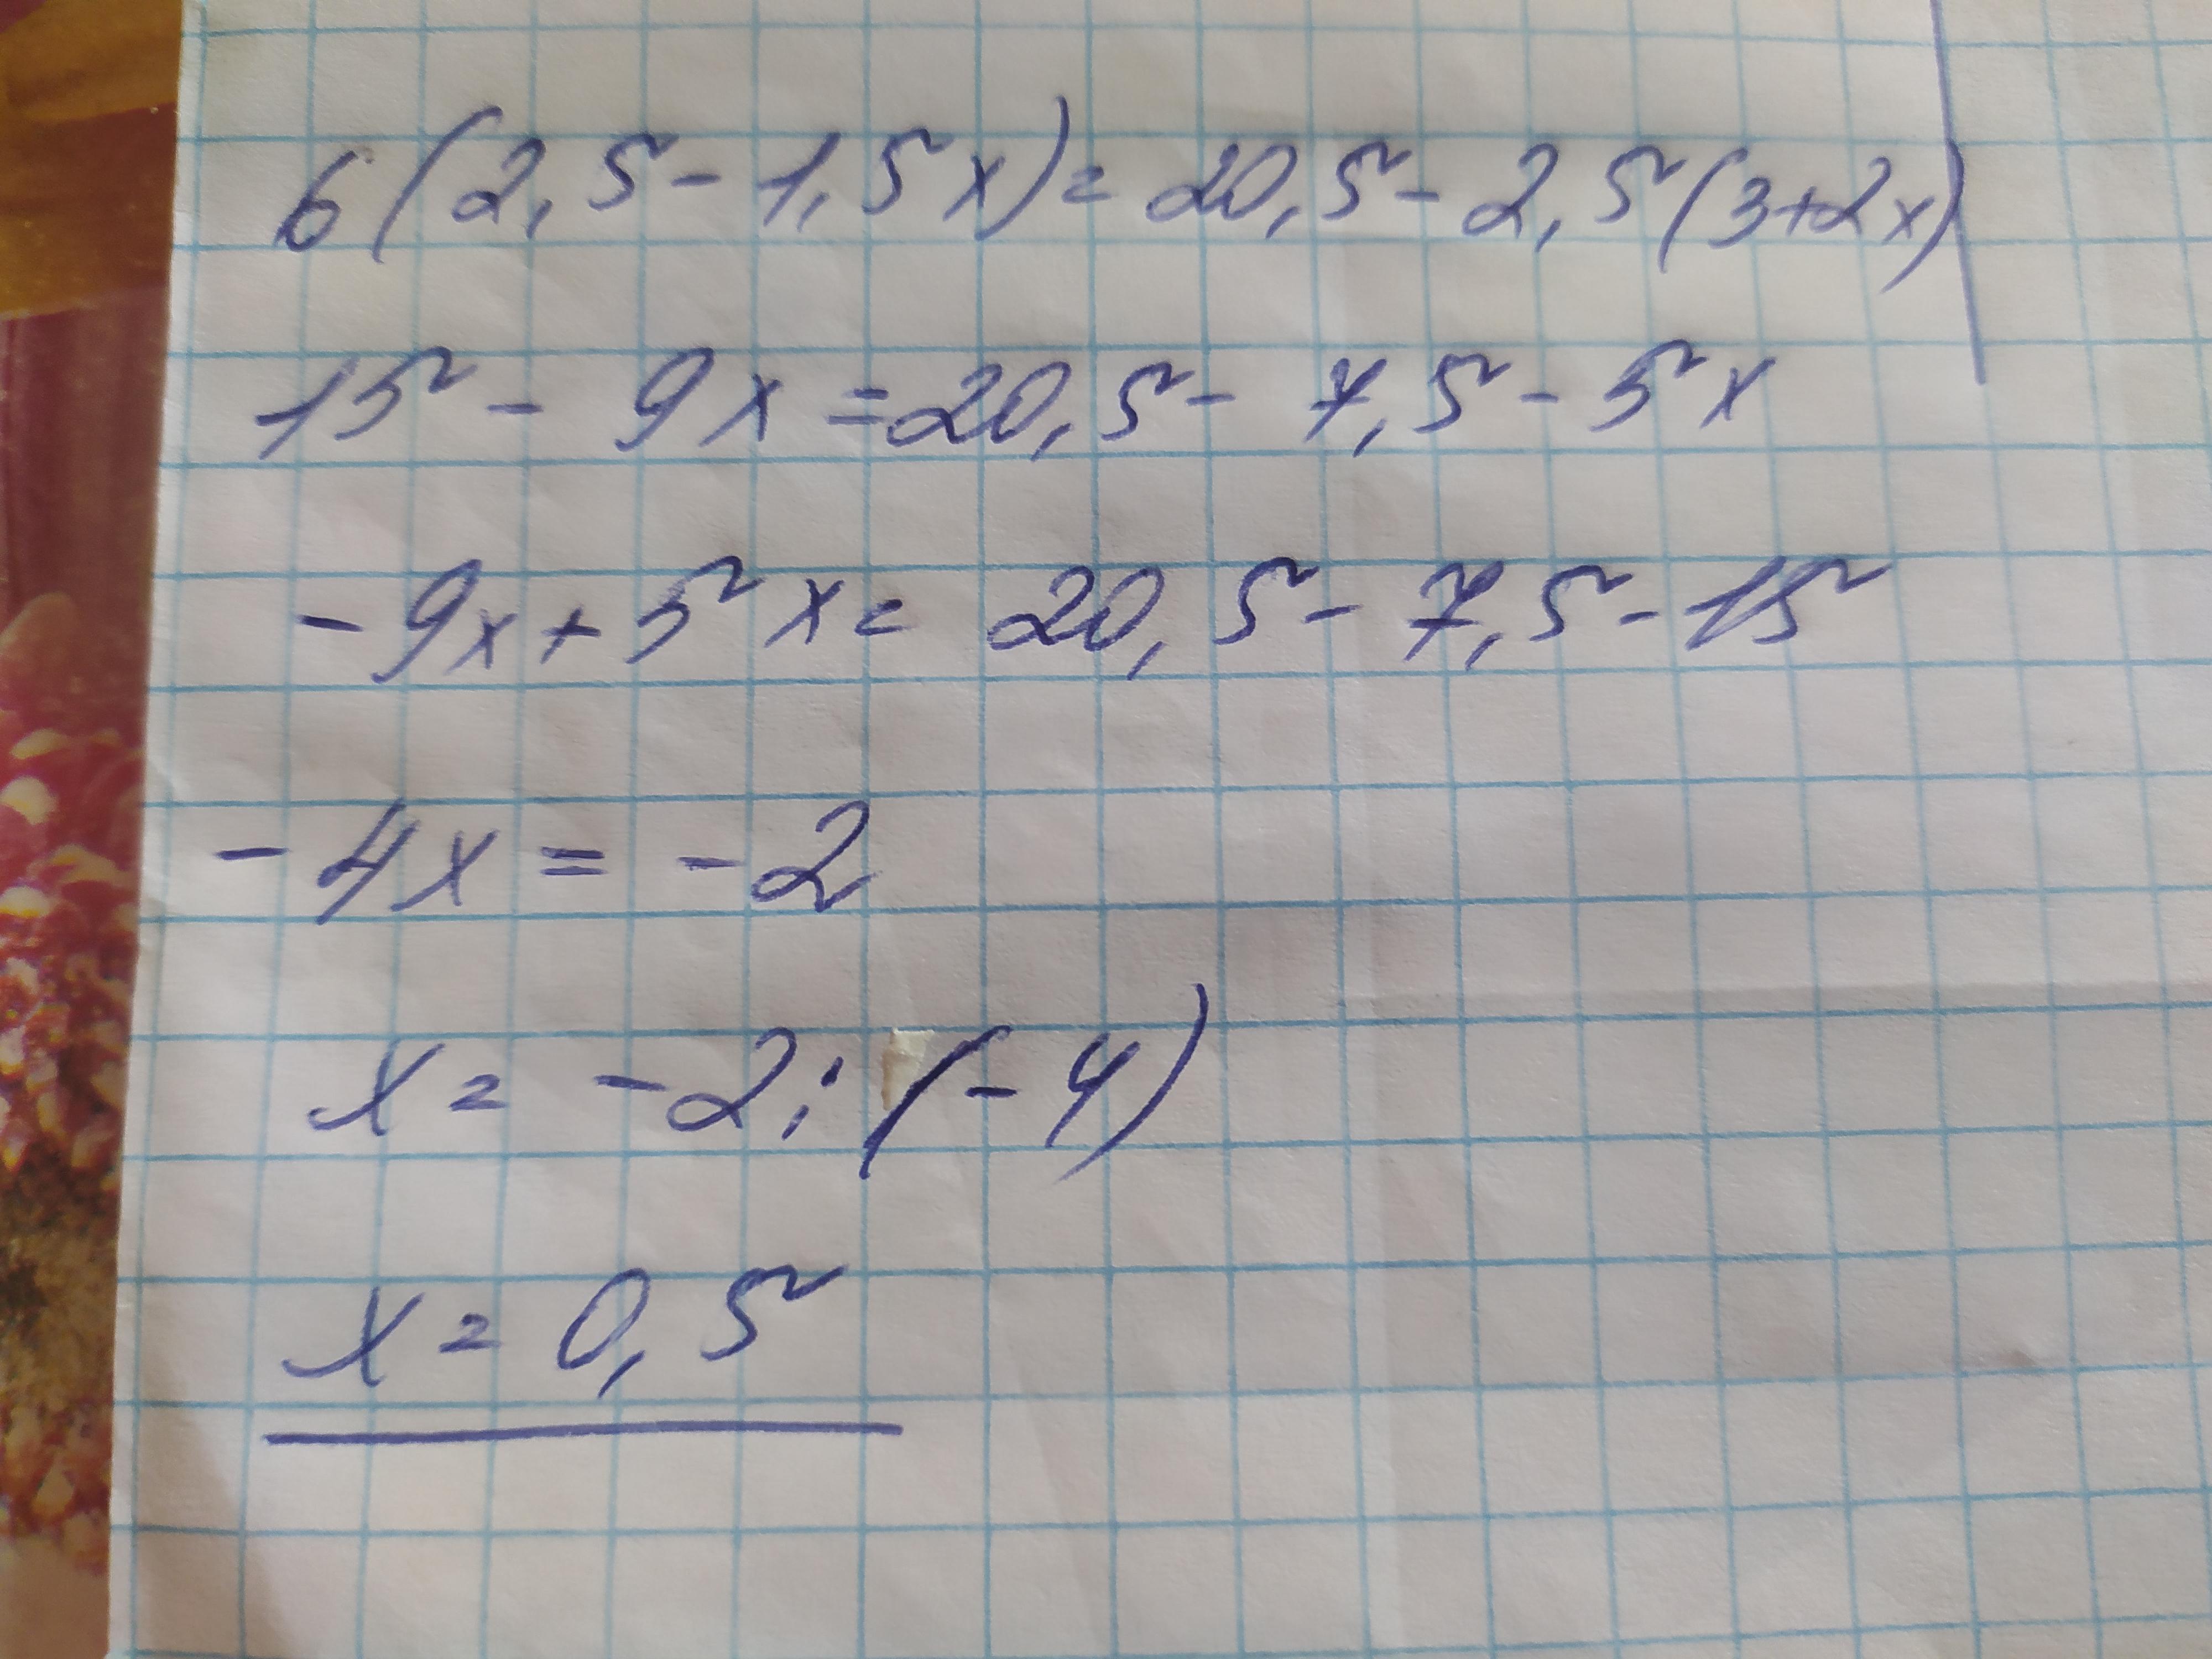 6(2,5-1,5x)=20,5-2,5(3+2x)
15-9x=20,5-7,5-5x
-9x+5x=20,5-7,5-15
-4x=-2
x=-2:(-4)
x=0,5